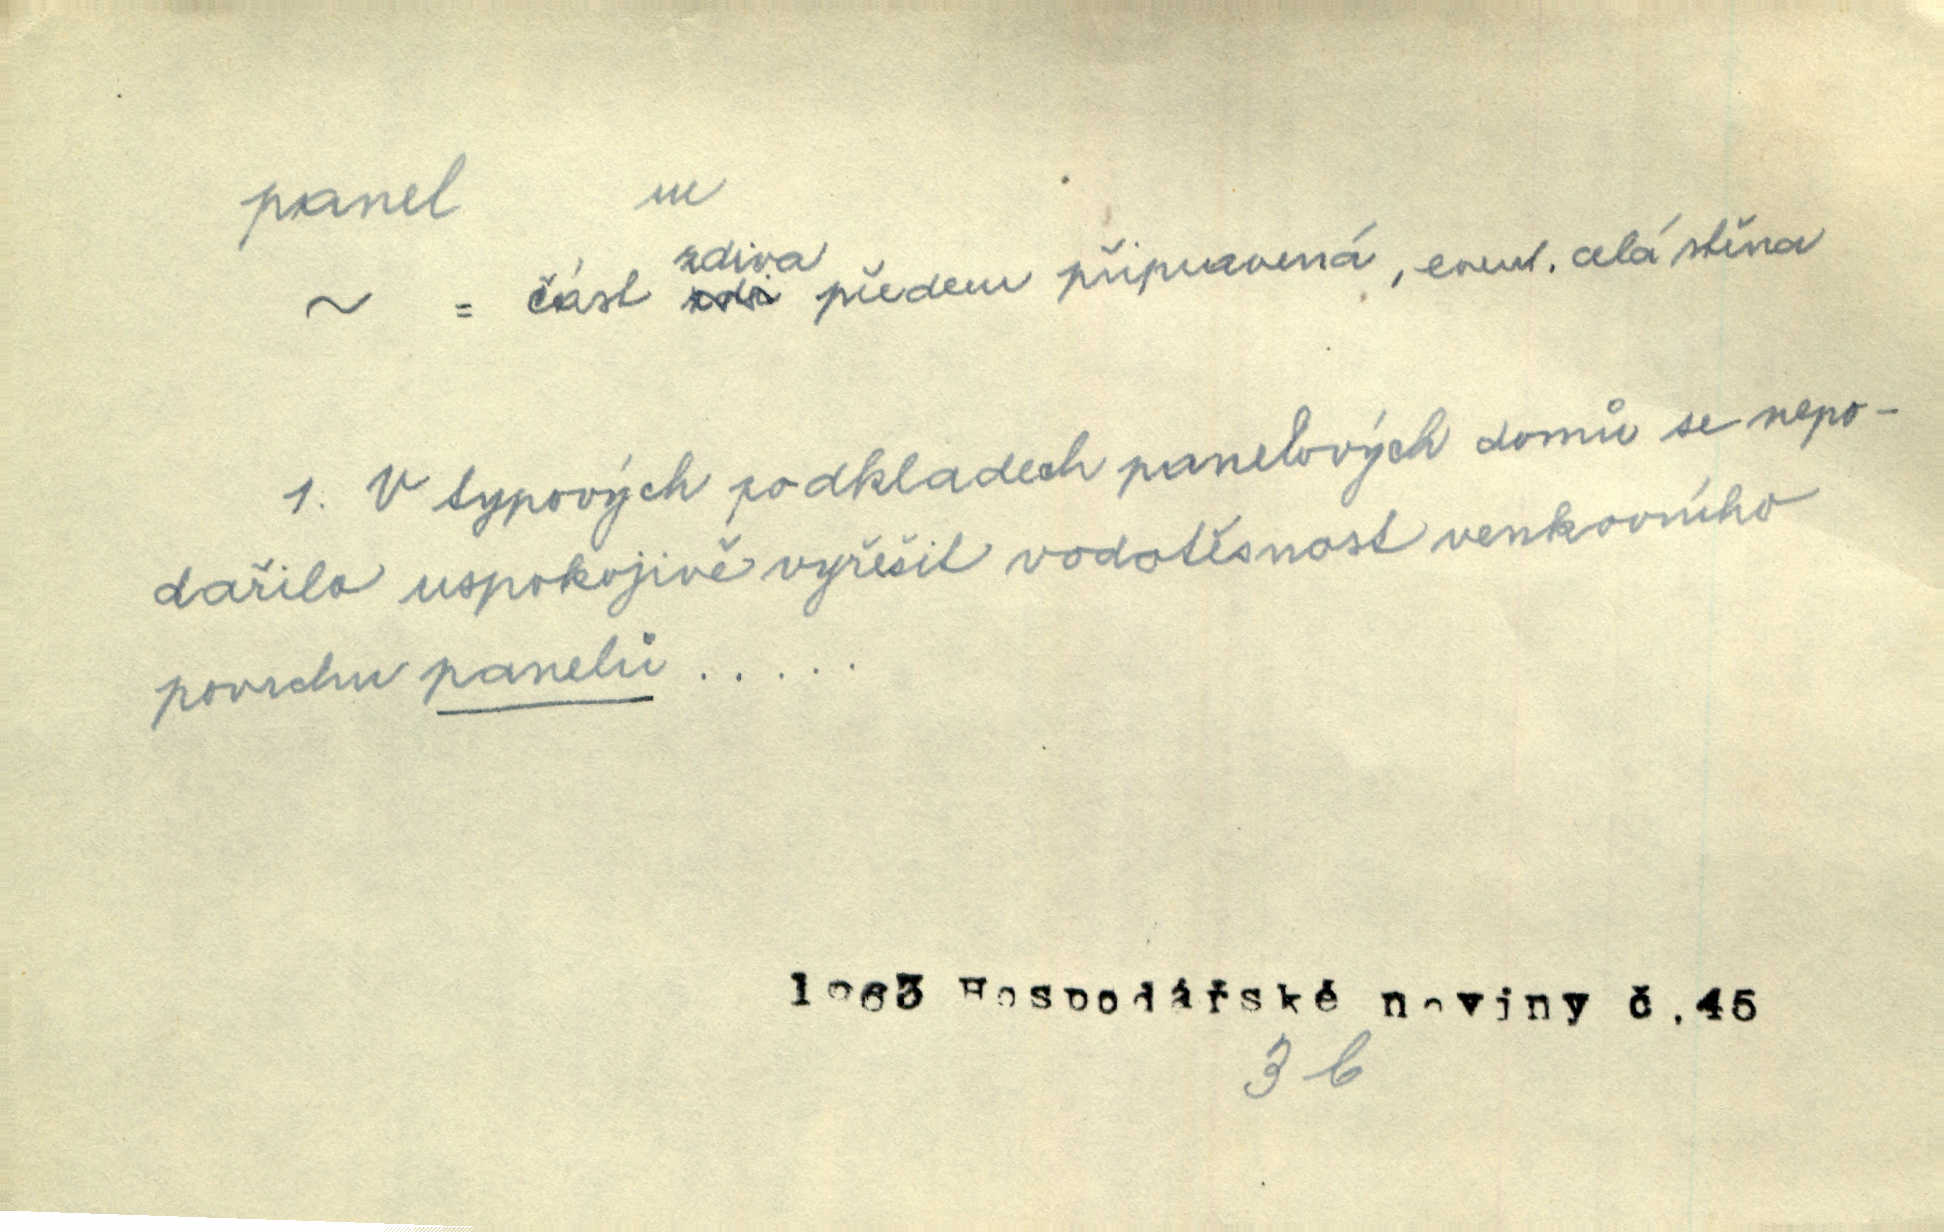 panel m
~ = část zdiva předem připravená, event. celá stěna
1. V typových podkladech panelových domů se nepo-
dařilo uspokojivě vyřešit vodotěsnost venkovního
povrchu panelů . . . . .
1963 Hospodářské noviny č.45
3 b